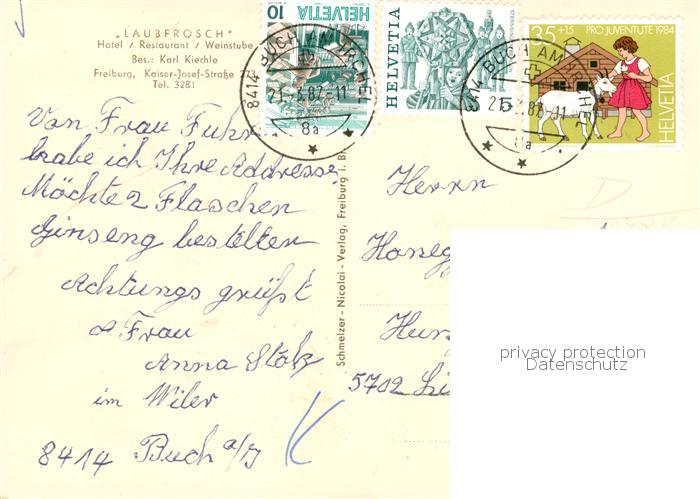 „LAUBFROSCH“
Hotel / Restaurant / Weinstube
Bes.: Karl Kiechle
Freiburg, Kaiser-Josef-Straße 273
Tel. 3281
10 HELVETIA
HELVETIA 5
35+15 PRO JUVENTUTE 1984
HELVETIA
8414 BUCH AM IRCHEL
21.-3.87.-11
8a
BUCH AM
8a
Von Frau Fuhr
habe ich Ihre Addresse,
Möchte 2 Flaschen
Ginseng bestellen
Achtungs grüßt
Frau
Anna Stolz
im Wiler
8414 Buch a/I
Schmelzer-Nicolai-Verlag, Freiburg i. Br.
Herrn
Honeg
5702
D
privacy protection
Datenschutz